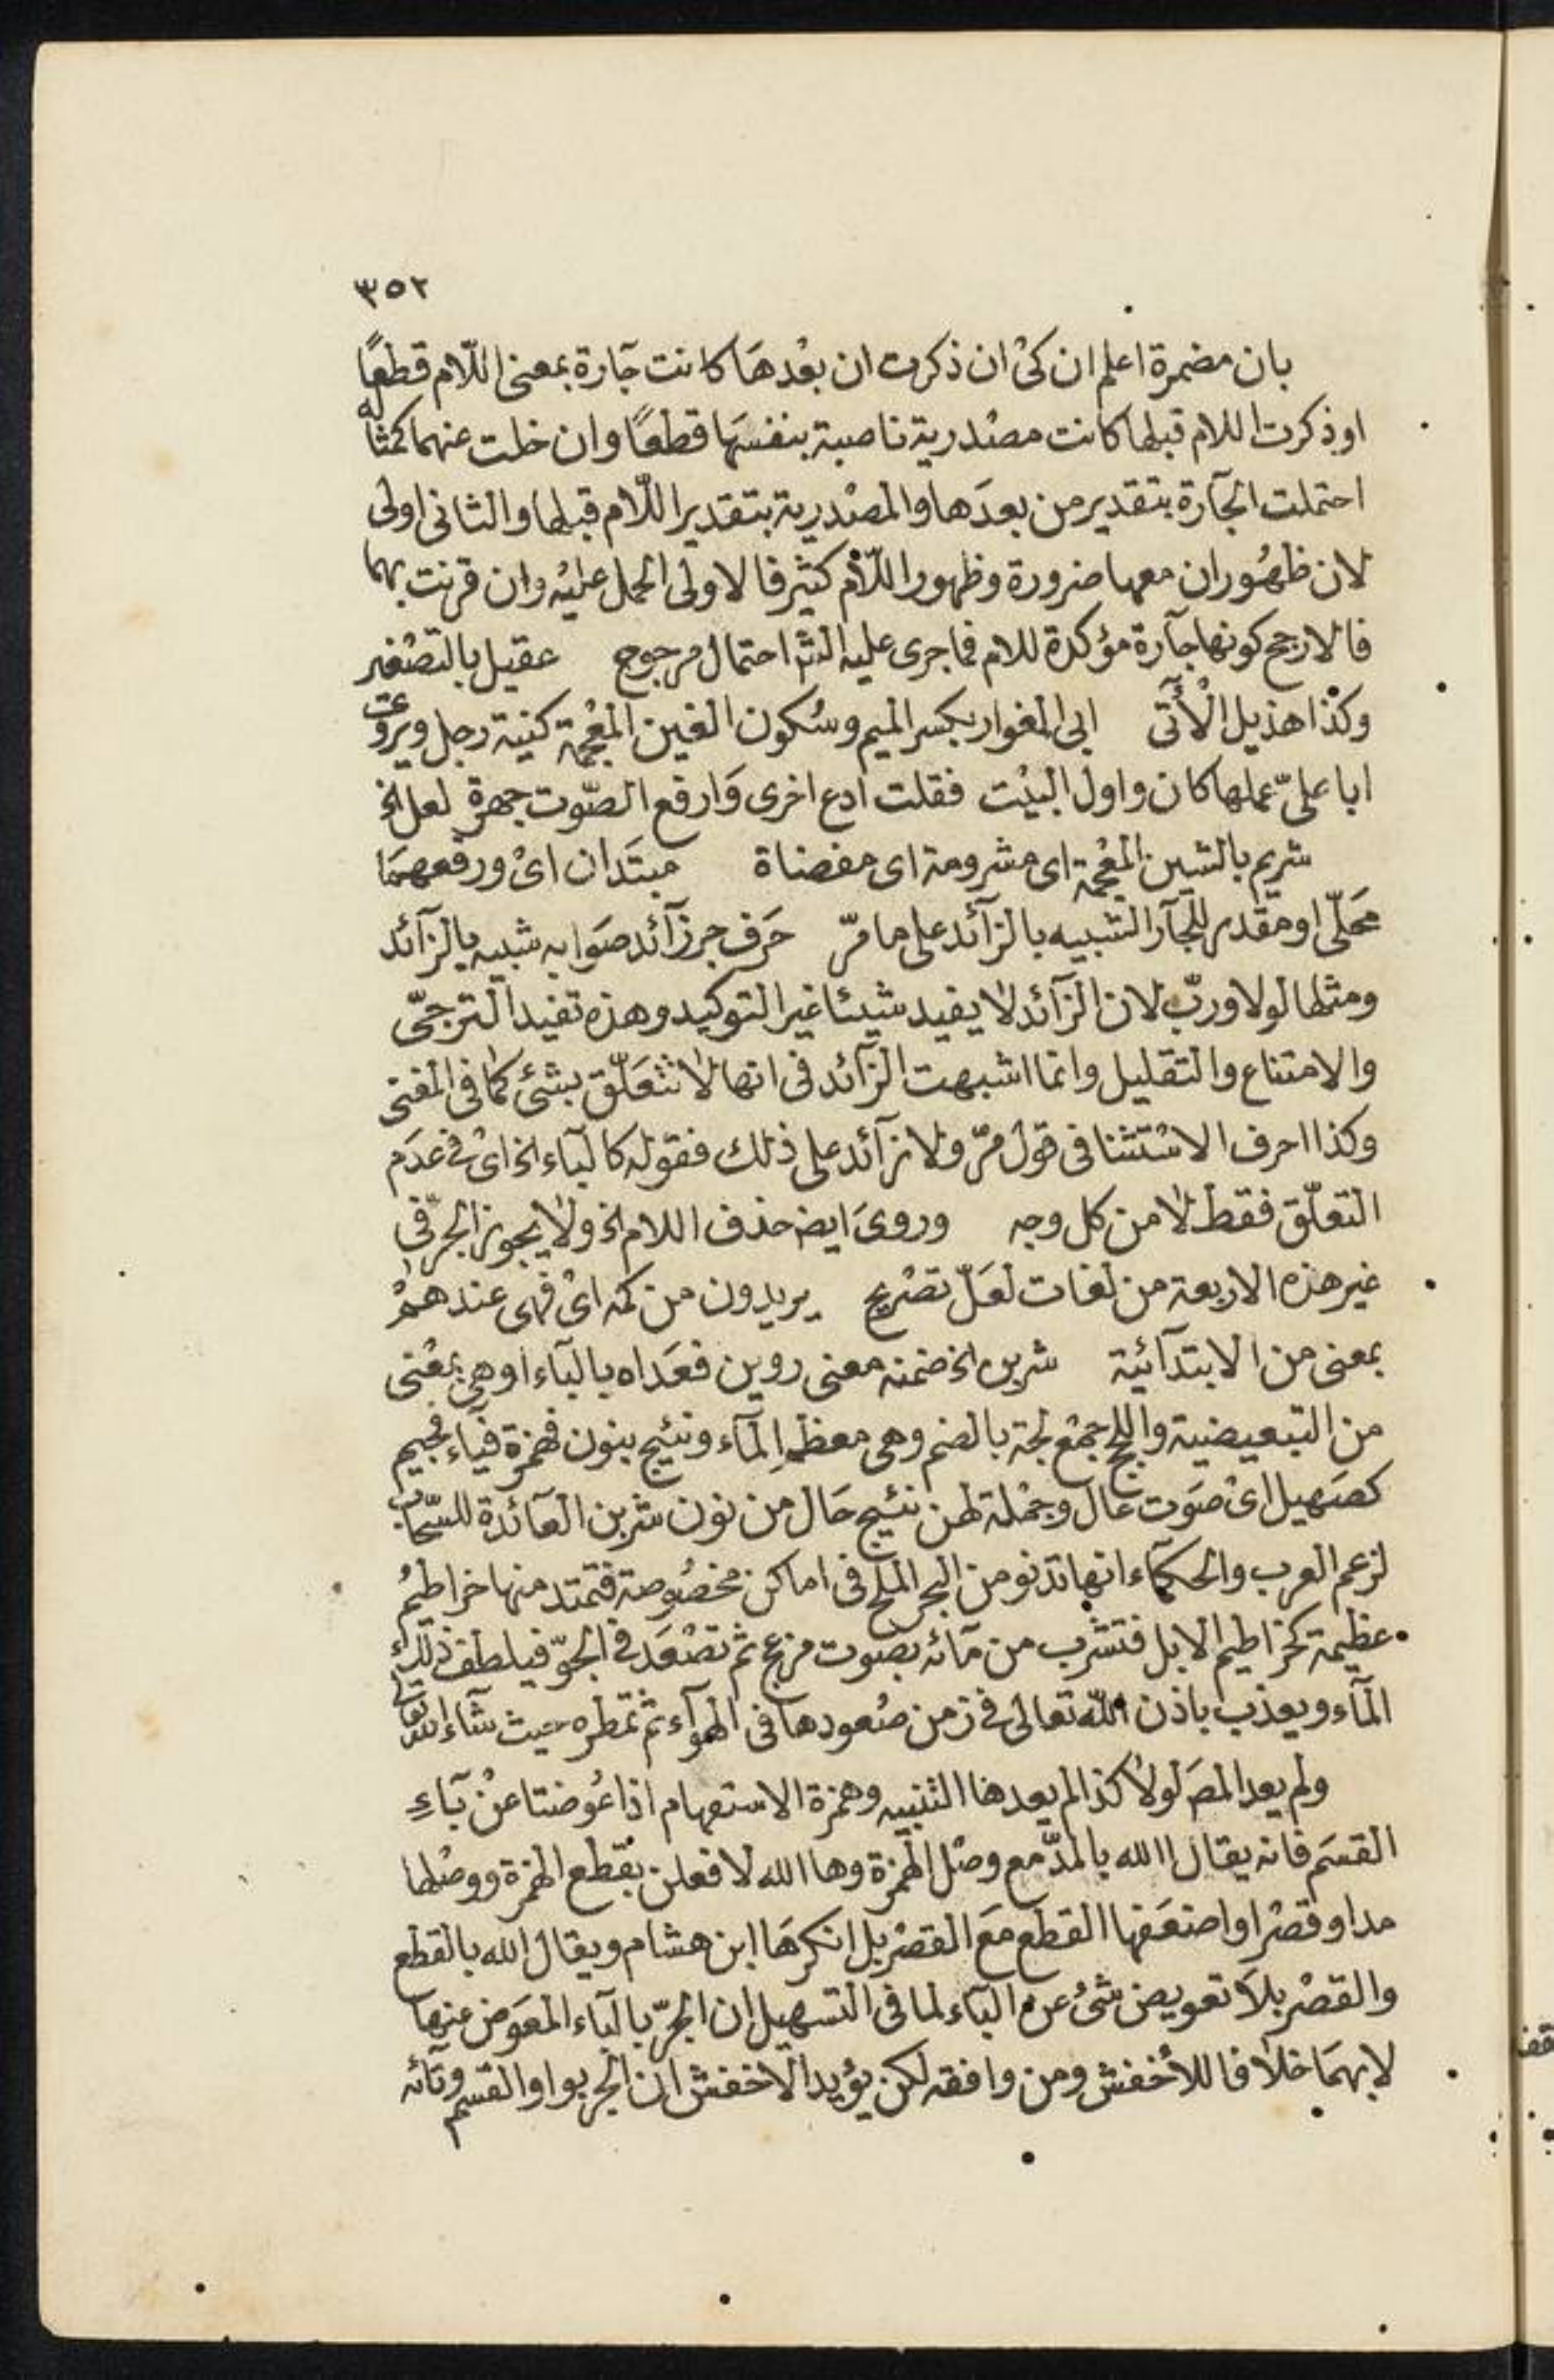 ٣٥٢
بان مضمرة اعلم ان كىْ ان ذكرت ان بعْدهَا كانت جَارة بمعنى اللّام قطعًا
او ذكرت اللام قبلها كانت مصْدرية ناصبة بنفسَها قطعًا وان خلت عنهما كمثاله
احتملت الجآرة بتقدير من بعدَها والمصْدرية بتقدير اللّام قبلها والثانى اولى
لان ظهُور ان معها ضرورة وظهور اللّام كثير فالاولى الحمل عليْه وان قرنت بهما
فالارجح كونها جآرة مؤكدة للام فما جرى عليه الشه احتمال مرجوح عقيل بالتصْغير
وكذا هذيل الْأتى ابى المغوار بكسر الميم وسُكون الغين المعْجمة كنية رجل ويروى
ابا علىّ عملها كان واول البيْت فقلت ادع اخرى وَارفع الصّوت جهرة لعل الخ
شريم بالشين المعْجمة اى مشرومة اى مفضاة مبتَدان اىْ ورفعهمَا
محَلّى او مقدر للجآر الشبيه بالزآئد على ما مرّ حَرف جر زآئد صَوابه شبيه بالزآئد
ومثلها لولا وربّ لان الزآئد لا يفيد شيئا غير التوكيد وهذه تفيد الترجّى
والامتناع والتقليل وانما اشبهت الزآئد فى انها لا تتَعلّق بشئ كما فى المغنى
وكذا احرف الاسْتثنا فى قول مرّ ولا زآئد على ذلك فقوله كالبآء الخ اىْ فى عدَم
التعلّق فقط لا من كل وجه وروىَ ايضـ حذف اللام الخ ولا يجوز الجرّ فى
غير هذه الاربعة من لغات لعَلّ تصْريح يريدون من كمه اىْ فهى عندهمْ
بمعنى من الابتدآئية شربن الخ ضمنه معنى روين فعَداه بالبآء او هى بمعْنى
من التبعيضية واللجج جمْع لجة بالضم وهى معظم المآء ونئيج بنون فهمزة فيآء فجيم
كصَهيل اىْ صَوت عال وجمْلة لهن نئيج حَال من نون شربن العآئدة للسّحاب
لزعم العرب والحكمآء انها تدنو من البحر الملح فى اماكن مخصُوصة فتمتد منها خراطيمُ
عظيمة كخراطيم الابل فتشرب من مآئه بصوت مزعج ثم تصْعَد فى الجوّ فيلطف ذلك
المآء ويعذب باذن اللّه تعالى فى زمن صُعودها فى الهوآء ثم تمطره حيث شآء اللّه تعالى
ولم يعد المصَ لولا كذا لم يعد ها التنبيه وهمزة الاستفهام اذا عُوضتا عنْ بآءِ
القسَم فانه يقال االله بالمدّ مع وصْل الهمزة وها الله لافعلن بقطع الهمزة ووصْلها
مدا وقصْرا واضعَفها القطع مَع القصْر بل انكرهَا ابن هشام ويقال الله بالقطع
والقصْر بلا تعويض شئ عن البآء لما فى التسهيل ان الجرّ بالبآء المعَوض عنها
لا بهمَا خلافا للأخفش ومن وافقه لكن يؤيد الاخفش ان الجر بواو القسم وتآئه